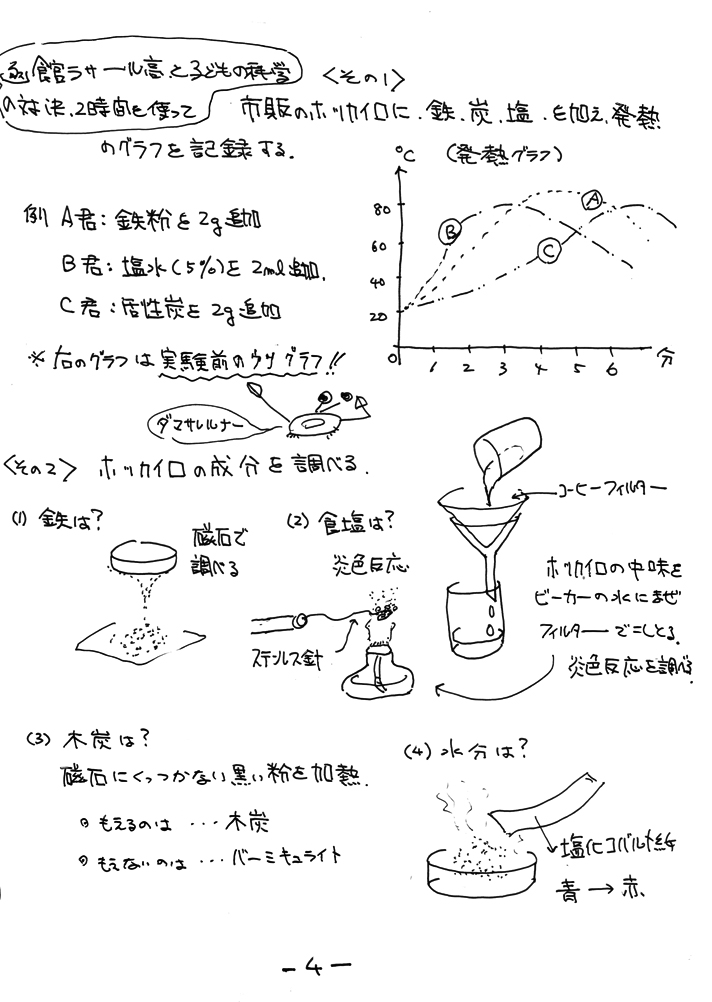 函館ラサール高と子どもの科学
の対決、2時間を使って
<その1>
市販のホッカイロに、鉄、炭、塩、を加え、発熱
のグラフを記録する。
℃ (発熱グラフ)
80
60
40
20
0 1 2 3 4 5 6 分
A
B
C
例 A君:鉄粉を2g追加
B君:塩水(5%)を2ml追加、
C君:活性炭を2g追加
※右のグラフは実験前のウソグラフ!!
ダマサレルナー
<その2> ホッカイロの成分を調べる。
(1) 鉄は?
磁石で
調べる
(2) 食塩は?
炎色反応
ステンレス針
コーヒーフィルター
ホッカイロの中味を
ビーカーの水にまぜ
フィルターでこしとる。
炎色反応を調べる
(3) 木炭は?
磁石にくっつかない黒い粉を加熱。
◎もえるのは ・・・木炭
◎もえないのは ・・・バーミキュライト
(4) 水分は?
塩化コバルト紙
青→赤、
-4-